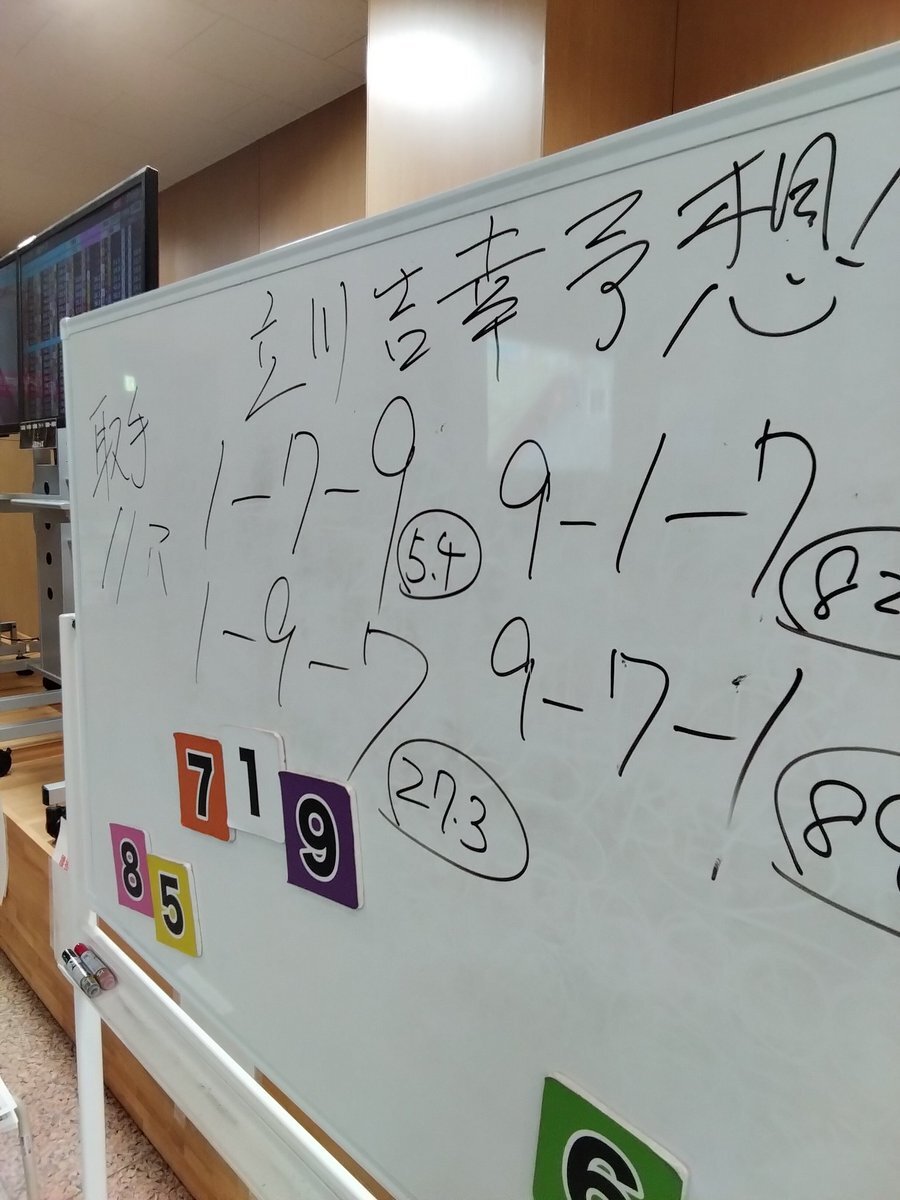 立川吉幸予想
取手
11R
1-7-9
5.4
9-1-7
82
1-9-7
27.3
9-7-1
7 1 9
8 5
6